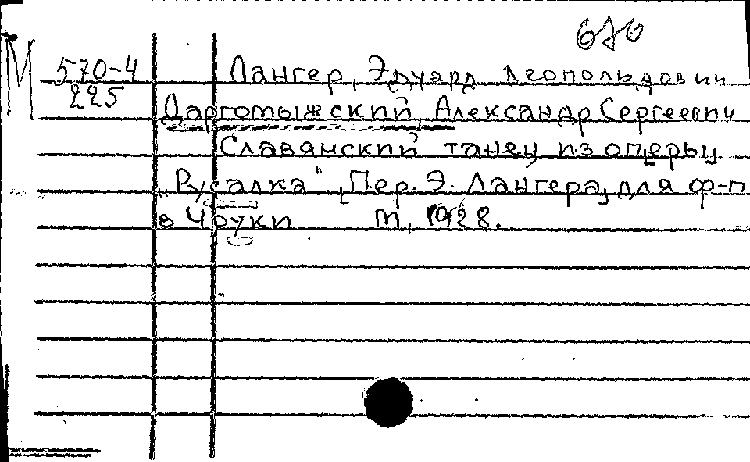 670
М 570-4 Лангер, Эдуард Леопольдович
225
Даргомыжский, Александр Сергеевич
Славянский танец из оперы
"Русалка". Пер. Э. Лангера, для ф-п
в 4 руки М, 1928.